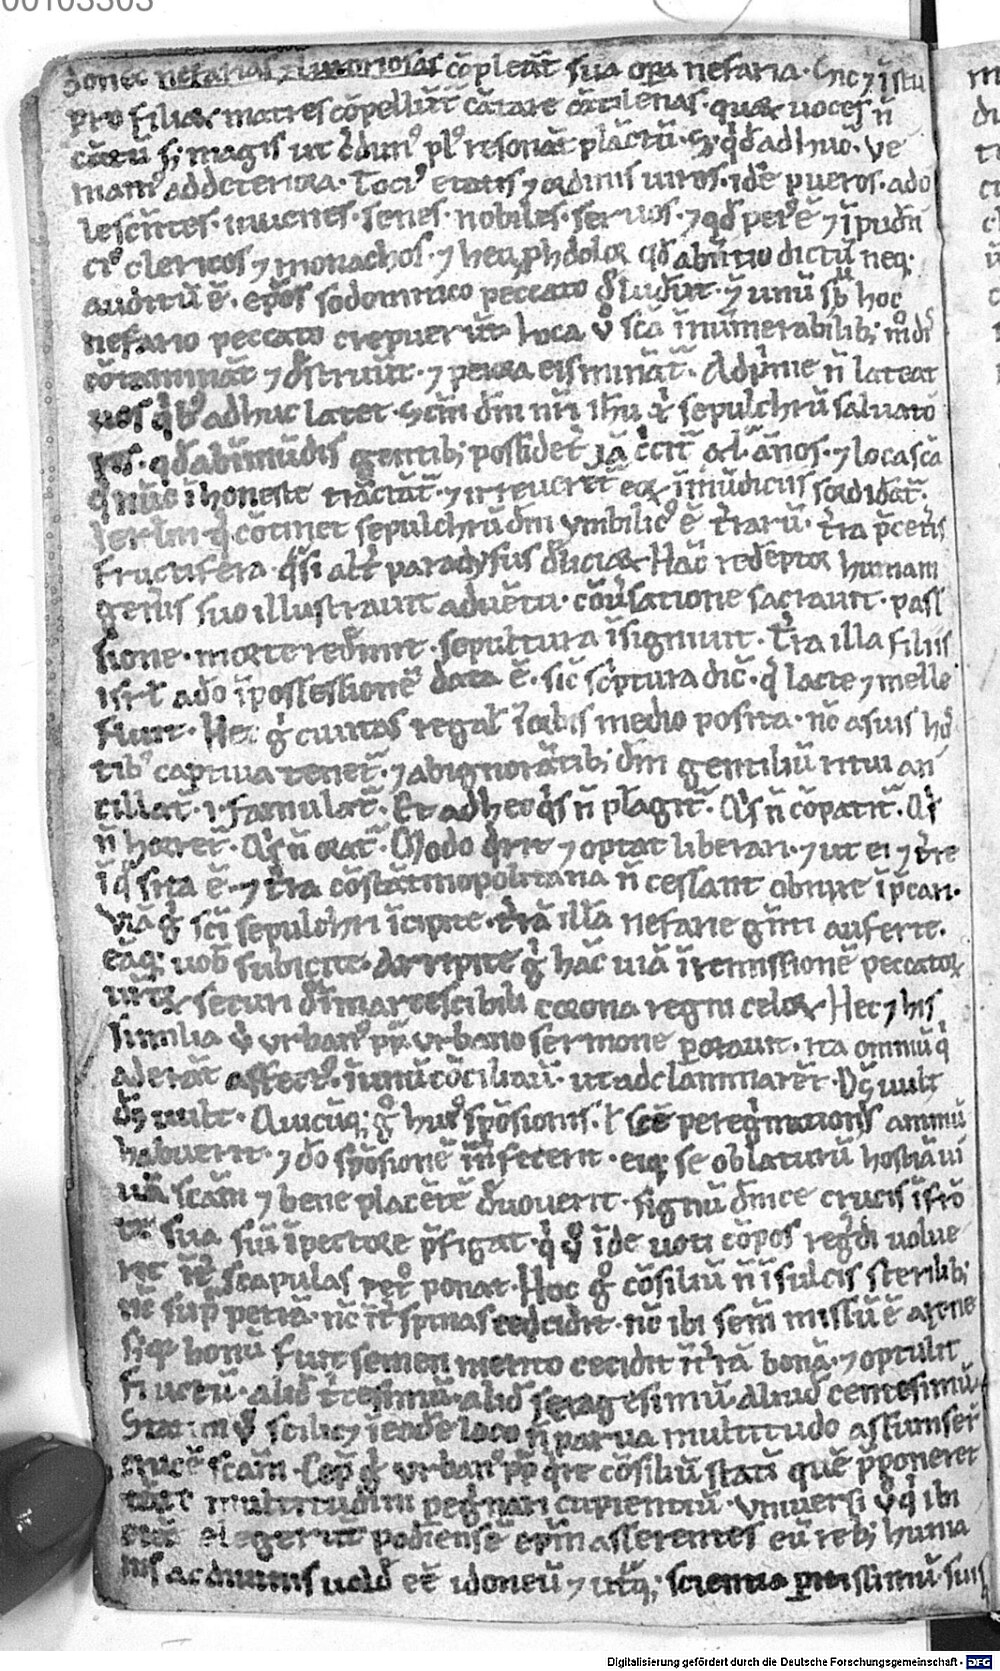 00103303
donec nefarias cōpleāt sua oꝑa nefaria. hͨ ⁊ ī istu
pro filiaꝝ matres cōpellūt cātare cātilenas. quaꝝ uoces n̄
cātū sꝫ magis ut c̄dimꝰ plꝰ resonāt plāctū. qͥd adhuc. ve
niamꝰ ad deteriora. Tociꝰ etatis ⁊ ordinis uiros. idē pueros. ado
lescētes. iuuenes. senes. nobiles. seruos. ⁊ qd̄ peiꝰ ē ⁊ īpudn̄
ciꝰ clericos ⁊ monachos. ⁊ heu ꝓhdolor qd̄ abīitio dictū neqꝫ
auditū ē. ep̄os sodomitico peccato d̄ludūt. ⁊ unū sub hoc
nefario peccato crepuerūt loca v̊ sc̄a īnūmerabilibꝫ mōdis
cōtamināt ⁊ dīstruūt. ⁊ peiora eis mināt̄. Ad ultime n̄ lateat
uos qͥbꝰ adhuc latet. Sc̄m dn̄i nr̄i ihū xp̄i sepulchrū saluato
ris. qd̄ ab īmūdis gentibꝫ possidet̄ annos. ⁊ loca sc̄a
q̄ nūc īhoneste tractāt̄. ⁊ irreuerēt̄ eoꝝ īmūdiciis sordidāt̄.
Ierl̄m q̄ cōtinet sepulchrū dn̄i ymbilicꝰ ē t̄rarū. t̄ra p̄ cet̄is
fructifera. qͣsi alt̄ paradysus d̄liciaꝝ Hāc redēptor humani
gen̄is suo illustrauit aduētu. cōuersatione sacrauit. pas
sione. morte redimit. sepultura īsigniuit. T̄ra illa filiis
isr̄l a do īpossessionē data ē. sic̄ sc̄ptura dic̄. q̄ lacte ⁊ melle
fluit. Hec g̊ ciuitas regal̄ ī orbis medio posita. nc̄ a suis hos
tibꝰ captiua tenet̄. ⁊ ab ignorātibꝫ dm̄ gentiliū ritui an
cillat̄. i. famulat̄. Et ad heo qͥs n̄ plāgit̄. Qͥs n̄ cōpatit̄. Qͥs
n̄ horret̄. Qͥs n̄ orat̄. Modo q̄rit ⁊ optat liberari. ⁊ ut ei ⁊ t̄re
ī q̄ sita ē. ⁊ t̄ra cōstātinopolitana n̄ cessant obnixe īp̄cari.
Viā g̊ sc̄i sepulchri īcipite. t̄rā illā nefarie gēti auferte.
eāqꝫ uob̄ subicite. Arripite g̊ hāc uiā ī remissionē peccatoꝝ
ur̄oꝝ securi d̄ īmarcescibili corona regni celoꝝ Hec ⁊ his
similia v̊ vrbanꝰ pp̄ vrbano sermone ꝑorauit. ita omniū q̄
aderāt affectꝰ īunū cōciliauit. ut adclammarēt. Dꝫ uult
dꝫ uult. Quicūqꝫ g̊ huiꝰ spōsionis. l̄ sc̄e peregͥnationis animū
habuerit. ⁊ do spōsionē īn fecerit. eiqꝫ se oblaturū hostiā ui
uā sc̄am ⁊ bene placētē d̄uouerit. signū dn̄ice crucis ī frō
te sua siū īpectore p̄figat. q̄ v̊ īde uoti cōpos regͥdi volue
rit īt̄ scapulas ret̊ ponat. Hoc g̊ cōsiliū n̄ ī sulcis sterilibꝫ
nc̄ sup̄ petrā. nc̄ īt̄ spinas cecidit. nc̄ ibi sem̄ missū ē arene
sꝫ qꝛ bonū fuit semen merito cecidit ī t̄rā bonā. ⁊ optulit
fructū. aliđ t̄cesimū. aliđ seragesimū. aliud centesimū.
Statim v̊ scilicꝫ ī eodē loco n̄ parua multitudo assumser̄
crucē sc̄am. Cep̄ g̊ vrbanꝰ pp̄ q̄re cōsiliū statī quē p̄poneret
tāte multitudini peg̊nari cupientiū. Vniuersi v̊ q̄ ibi
erāt elegerūt podiensē ep̄m asserentes eū rebꝫ huma
nis ac diuinis ualđ eē idoneū ⁊ ut̄qꝫ scientia ꝑitissimū. suis
Digitalisierung gefördert durch die Deutsche Forschungsgemeinschaft - DFG